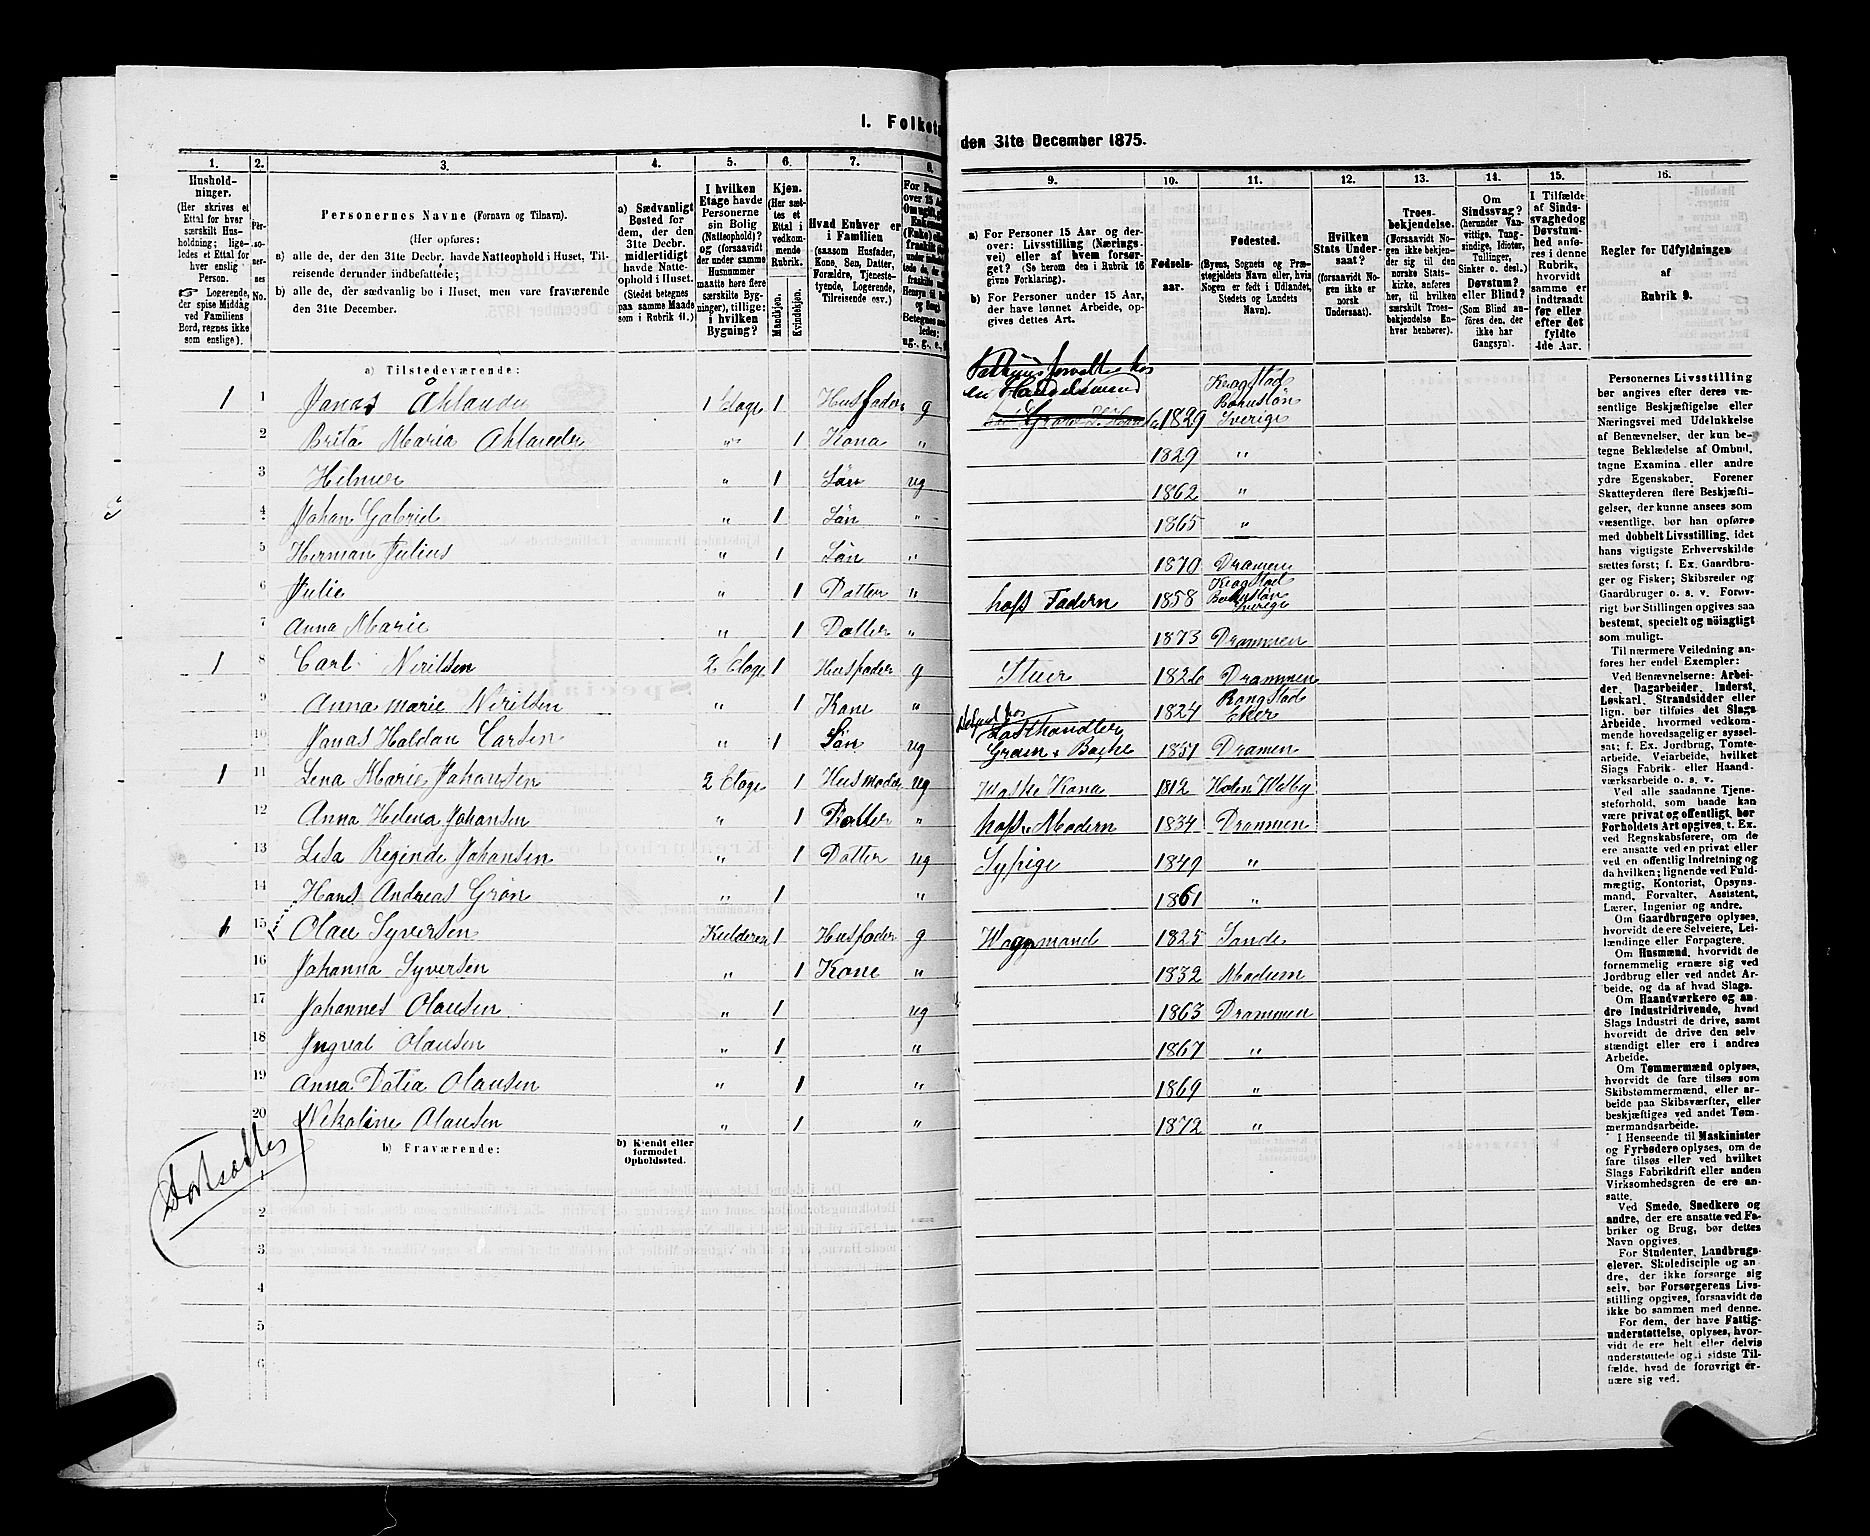 I. Folket
den 31te December 1875.
1. 2. 3. 4. 5. 6. 7. 8.
9. 10. 11. 12. 13. 14. 15. 16.
Hushold-
ninger.
(Her skrives et
Ettal for hver
særskilt Hus-
holdning; lige-
ledes et Ettal for
hver enslig
Person.
☞ Logerende,
der spise Middag
ved Familiens
Bord, regnes ikke
som enslige).
Per-
so-
ner-
nes
No.
Personernes Navne (Fornavn og Tilnavn).
(Her opføres:
a) alle de, der den 31te Decbr. havde Natteophold i Huset, Til-
reisende derunder indbefattede;
b) alle de, der sædvanlig bo i Huset, men vare fraværende
den 31te December.
a) Sædvanligt
Bosted for
dem, der den
31te Decbr.
midlertidigt
havde Natte-
ophold i Huset.
(Stedet betegnes
paa samme Maade
som i Rubrik 11.)
I hvilken
Etage havde
Personerne
sin Bolig
(Natteophold)?
(forsaavidt
der under samme
Husnummer
maatte høre flere
særskilte Byg-
ninger), tillige:
i hvilken
Bygning?
Kjøn.
(Her sæt-
tes et
Ettal i
vedkom-
mende
Rubrik.
Mandkjøn.
Kvindekjøn.
Hvad Enhver er
i Familien
(saasom Husfader,
Kone, Søn, Datter,
Forældre, Tjeneste-
tyende, Logerende,
Tilreisende osv.)
a) For Personer 15 Aar og der-
over: Livsstilling (Nærings-
vei) eller af hvem forsør-
get? (Se herom den i Rubrik 16
givne Forklaring).
b) For Personer under 15 Aar,
der have lønnet Arbeide, op-
gives dettes Art.
Fødsels-
aar.
Fødested.
(Byens, Sognets og Præ-
stegjeldets Navn eller, hvis
Nogen er født i Udlandet,
Stedets og Landets
Navn).
Hvilken
Stats Under-
saat?
(forsaavidt No-
gen ikke er
norsk
Undersaat).
Troes-
bekjendelse.
(Forsaavidt No-
gen ikke bekjen-
der sig til den
norske Stats-
kirke, anføres
her, til hvilken
særskilt Troes-
bekjendelse En-
hver henhører).
Om
Sindssvag?
(herunder Van-
vittige, Tung-
sindige, Idioter,
Tullinger,
Sinker o. desl.)
Døvstum?
eller Blind?
(Som Blind an-
føres den, der
ikke har
Gangsyn).
I Tilfælde
af Sinds-
svaghed og
Døvstum-
hed anfø-
res i denne
Rubrik,
hvorvidt
samme er
indtraadt
før eller
efter det
fyldte
4de Aar.
Regler for Udfyldningen
af
Rubrik 9.
a) Tilstedeværende:
1 1 Jonas Åhlander 1 Etage 1 Husfader g en Handelsmand 1829 Sverige
2 Brita Maria Ahlander " 1 Kona " 1829 "
3 Hilmer " 1 Sön ug 1862 "
4 Johan Gabriel " 1 Sön " 1865 "
5 Herman Julius " 1 Sön " 1870 Dramen
6 Julie " 1 Datter " hoss Fadern 1858 Sverige
7 Anna Marie " 1 Datter " 1873 Drammen
1 8 Carl 2 Etage 1 Husfader g Stuer 1826 Drammen
9 Anna marie " 1 Kone " 1824 Eker
10 Jonas Haldan Carsen " 1 Sön ug Gram & Bache 1851 Dramen
1 11 Lena Marie Johansen 2 Etage 1 Husmoder ug Vaske Kona 1812
12 Anna Helena Johansen " 1 Datter " hoss Modern 1834 Drammen
13 Lisa Reginde Johansen " 1 Datter ug Sypige 1849 "
14 Hans Andreas Grön 1 " 1861 "
1 15 Olau Syversen Kielderen 1 Husfader g Wognmand 1825 Sande
16 Johanna Syversen " 1 Kone " 1832 Modum
17 Johannes Olausen " 1 ug 1863 Drammen
18 Ingval Olausen " 1 " 1867 "
19 Anna Olausen " 1 " 1869 "
20 Nikoline Olausen " 1 " 1872 "
Fortsættes
b) Fraværende:
b) Kjendt eller
formodet
Opholdssted.
1
2
3
4
5
6
Personernes Livsstilling
bør angives efter deres væ-
sentlige Beskjæftigelse eller
Næringsvei med Udelukkelse
af Benævnelser, der kun be-
tegne Beklædelse af Ombud,
tagne Examina eller andre
ydre Egenskaber. Forener
Skatteyderen flere Beskjæfti-
gelser, der kunne ansees som
væsentlige, bør han opføres
med dobbelt Livsstilling, idet
hans vigtigste Erhvervskilde
sættes først; f. Ex. Gaardbru-
ger og Fisker; Skibsreder og
Gaardbruger o. s. v. Forøv-
rigt bør Stillingen opgives saa
bestemt, specielt og nöiagtigt
som muligt.
Til nærmere Veiledning an-
føres her endel Exempler:
Ved Benævnelserne: Arbei-
der, Dagarbeider, Inderst,
Løskarl, Strandsidder eller
lign. bør tilføies det Slags
Arbeide, hvormed vedkom-
mende hovedsagelig er syssel-
sat; f. Ex. Jordbrug, Tomte-
arbeide, Veiarbeide, hvilket
Slags Fabrik- eller Haand-
værksarbeide o. s. v.
Ved alle saadanne Tjene-
steforhold, som baade kan
være privat og offentligt, bør
Forholdets Art opgives, t. Ex.
ved Regnskabsførere, om de
ere ansatte ved en privat eller
ved en offentlig Indretning og
da hvilken; lignende ved Fuld-
mægtig, Kontorist, Opsyns-
mand, Forvalter, Assistent,
Lærer, Ingeniør og andre.
Om Gaardbrugere oplyses,
hvorvidt de ere Selveiere, Lei-
lændinge eller Forpagtere.
Om Husmænd, hvorvidt de
fornemmelig ernære sig ved
Jordbrug eller ved andet Ar-
beide, og da af hvad Slags.
Om Haandværkere og an-
dre Industridrivende, hvad
Slags Industri de drive, samt
hvorvidt de drive den selv
stændigt eller ere i andres
Arbeide.
Om Tømmermænd oplyses,
hvorvidt de fare tilsøs som
Skibstømmermænd, eller ar-
beide paa Skibsværfter, eller
beskjæftiges ved andet Tøm-
mermandsarbeide.
I Henseende til Maskinister
og Fyrbødere oplyses, om de
fare tilsøs eller ved hvilket
Slags Fabrikdrift eller anden
Virksomhedsgren de ere an-
satte.
Ved Smede, Snedkere og
andre, der ere ansatte ved Fa-
briker og Brug, bør dettes
Navn opgives.
For Studenter, Landbrugs-
elever, Skoledisciple og an-
dre, der ikke forsørge sig
selv, bør Forsørgerens Livs-
stilling opgives, forsaavidt de
ikke bo sammen med denne.
For dem, der have Fattig-
understøttelse, oplyses, hvor-
vidt de ere helt eller delvis
understøttede og i sidste Til-
fælde, hvad de forøvrigt er-
nære sig ved.